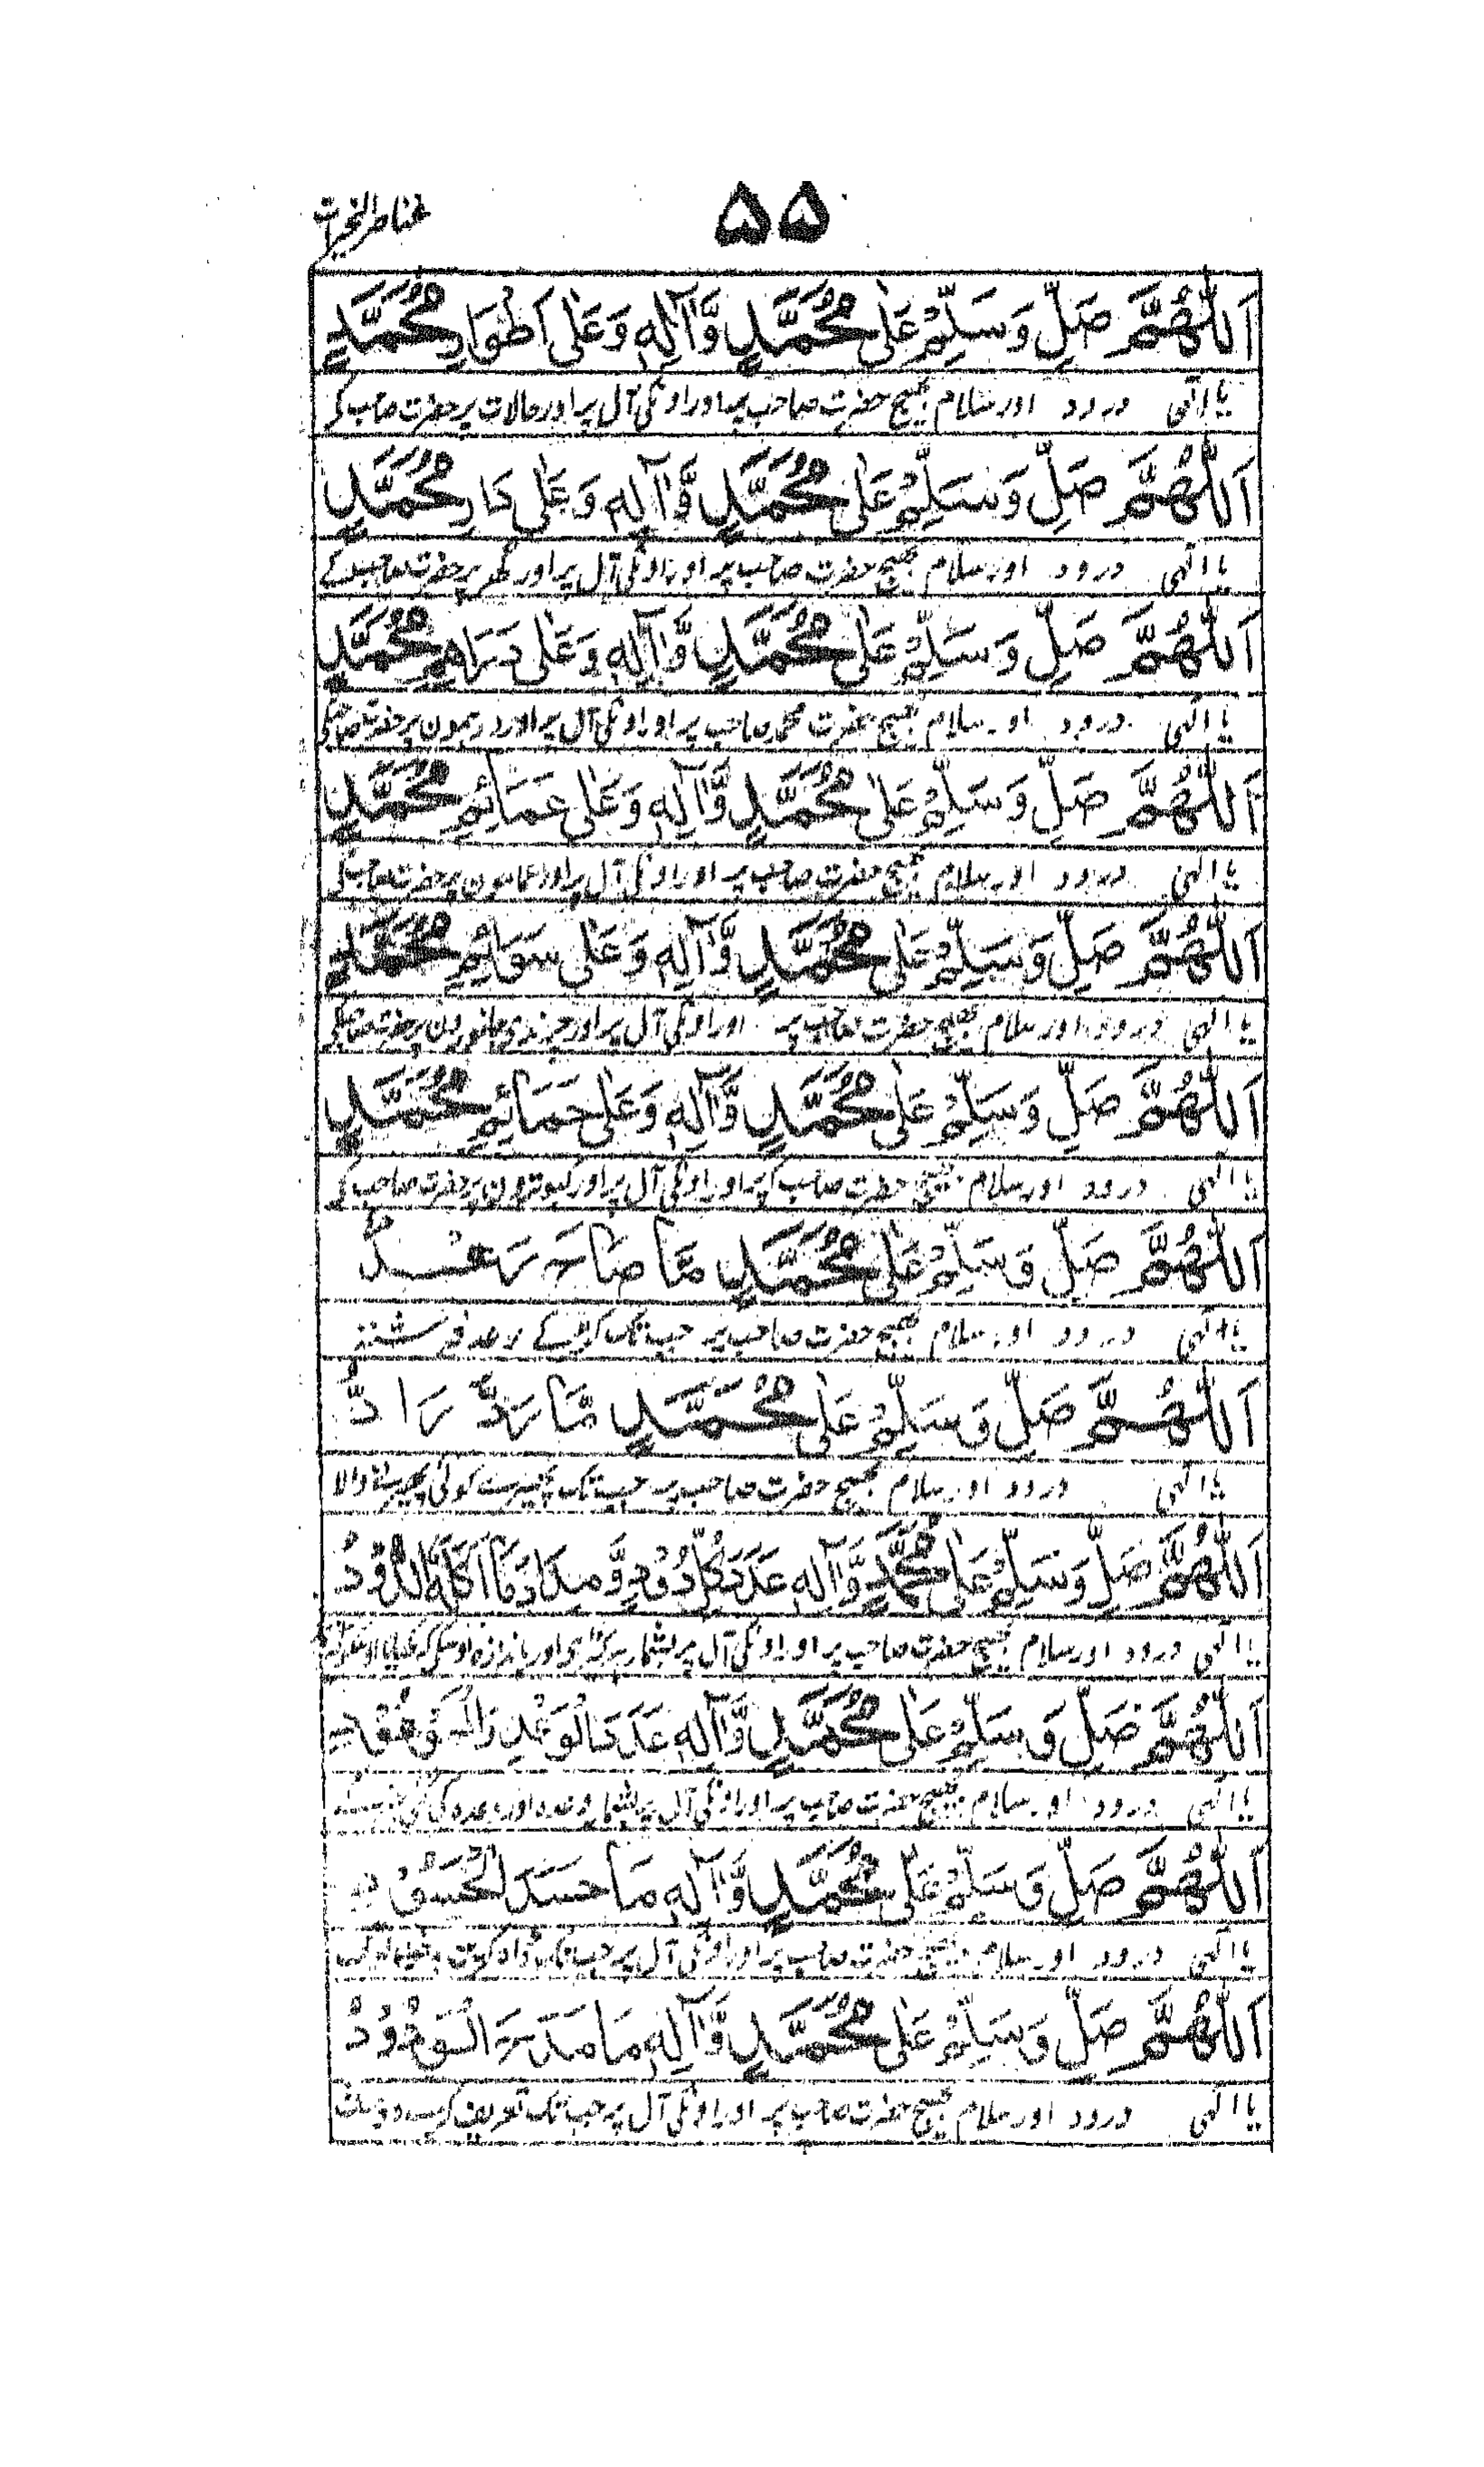 ۵۵
عناصر الخیرات
اَللّٰهُمَّ صَلِّ وَسَلِّمْ عَلٰى مُحَمَّدٍ وَّاٰلِهٖ وَعَلٰى اَطْوَارِ مُحَمَّدٍ
یا الٰہی درود اور سلام بھیج حضرت صاحب پر اور اونکی آل پر اور حالات پر حضرت صاحب کی
اَللّٰهُمَّ صَلِّ وَسَلِّمْ عَلٰى مُحَمَّدٍ وَّاٰلِهٖ وَعَلٰى دَارِ مُحَمَّدٍ
یا الٰہی درود اور سلام بھیج حضرت صاحب پر اور اونکی آل پر اور گھر پر حضرت صاحب کے
اَللّٰهُمَّ صَلِّ وَسَلِّمْ عَلٰى مُحَمَّدٍ وَّاٰلِهٖ وَعَلٰى دَرَاهِمِ مُحَمَّدٍ
یا الٰہی درود اور سلام بھیج حضرت محمد صاحب پر اور اونکی آل پر اور درہمون پر حضرت صاحبکی
اَللّٰهُمَّ صَلِّ وَسَلِّمْ عَلٰى مُحَمَّدٍ وَّاٰلِهٖ وَعَلٰى عَمَائِمِ مُحَمَّدٍ
یا الٰہی درود اور سلام بھیج حضرت صاحب پر اور اونکی آل پر اور عمامون پر حضرت صاحبکی
اَللّٰهُمَّ صَلِّ وَسَلِّمْ عَلٰى مُحَمَّدٍ وَّاٰلِهٖ وَعَلٰى سَوَائِمِ مُحَمَّدٍ
یا الٰہی درود اور سلام بھیج حضرت صاحب پر اور اونکی آل پر اور چرندی جانورون پر حضرت صاحبکی
اَللّٰهُمَّ صَلِّ وَسَلِّمْ عَلٰى مُحَمَّدٍ وَّاٰلِهٖ وَعَلٰى حَمَائِمِ مُحَمَّدٍ
یا الٰہی درود اور سلام بھیج حضرت صاحب پر اور اونکی آل پر اور کبوترون پر حضرت صاحب کی
اَللّٰهُمَّ صَلِّ وَسَلِّمْ عَلٰى مُحَمَّدٍ مَّا صَاتَ رَعْدٌ
یا الٰہی درود اور سلام بھیج حضرت صاحب پر جب تک کڑکے رعد فرشتہ
اَللّٰهُمَّ صَلِّ وَسَلِّمْ عَلٰى مُحَمَّدٍ مَّا رَدَّ رَادٌّ
یا الٰہی درود اور سلام بھیج حضرت صاحب پر جب تک پھیرے کوئی پھیرنے والا
اَللّٰهُمَّ صَلِّ وَسَلِّمْ عَلٰى مُحَمَّدٍ وَّاٰلِهٖ عَدَدَ كُلِّ دُوْدٍ وَّمِدَادَ مَا اَكَلَهُ الدُّوْدُ
یا الٰہی درود اور سلام بھیج حضرت صاحب پر اور اونکی آل پر بشمار ہر کیڑی اور باندازہ اوسکی کہ
اَللّٰهُمَّ صَلِّ وَسَلِّمْ عَلٰى مُحَمَّدٍ وَّاٰلِهٖ عَدَدَ الْوَعْدِ وَالْمَوْعُوْدِ
یا الٰہی درود اور سلام بھیج حضرت صاحب پر اور اونکی آل پر بشمار وعدہ اور وعدہ کی
اَللّٰهُمَّ صَلِّ وَسَلِّمْ عَلٰى مُحَمَّدٍ وَّاٰلِهٖ مَا حَسَدَ الْحَسُوْدُ
یا الٰہی درود اور سلام بھیج حضرت صاحب پر اور اونکی آل پر جب تک
اَللّٰهُمَّ صَلِّ وَسَلِّمْ عَلٰى مُحَمَّدٍ وَّاٰلِهٖ مَا مَدَحَ الْوَدُوْدُ
یا الٰہی درود اور سلام بھیج حضرت صاحب پر اور اونکی آل پر جب تک تعریف کرے دوست